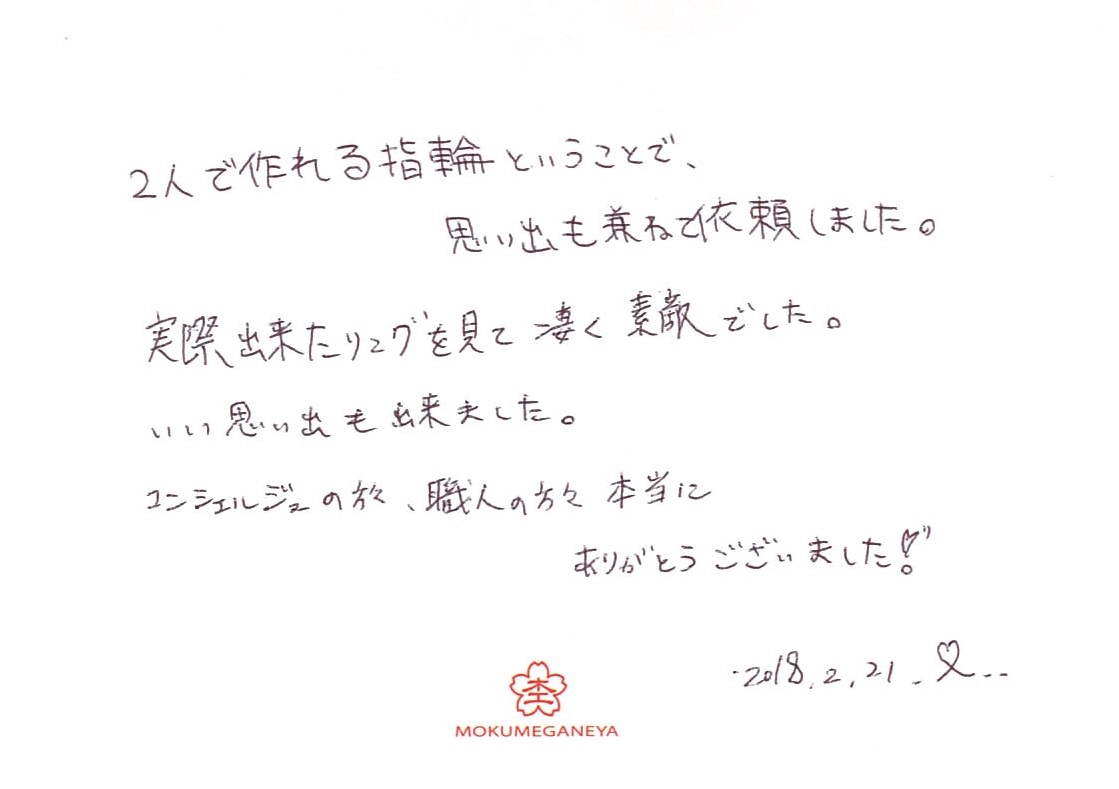 2人で作れる指輪ということで、
思い出も兼ねて依頼しました。
実際出来たリングを見て凄く素敵でした。
いい思い出も出来ました。
コンシェルジュの方々、職人の方々本当に
ありがとうございました!
2018.2.21
杢
MOKUMEGANEYA